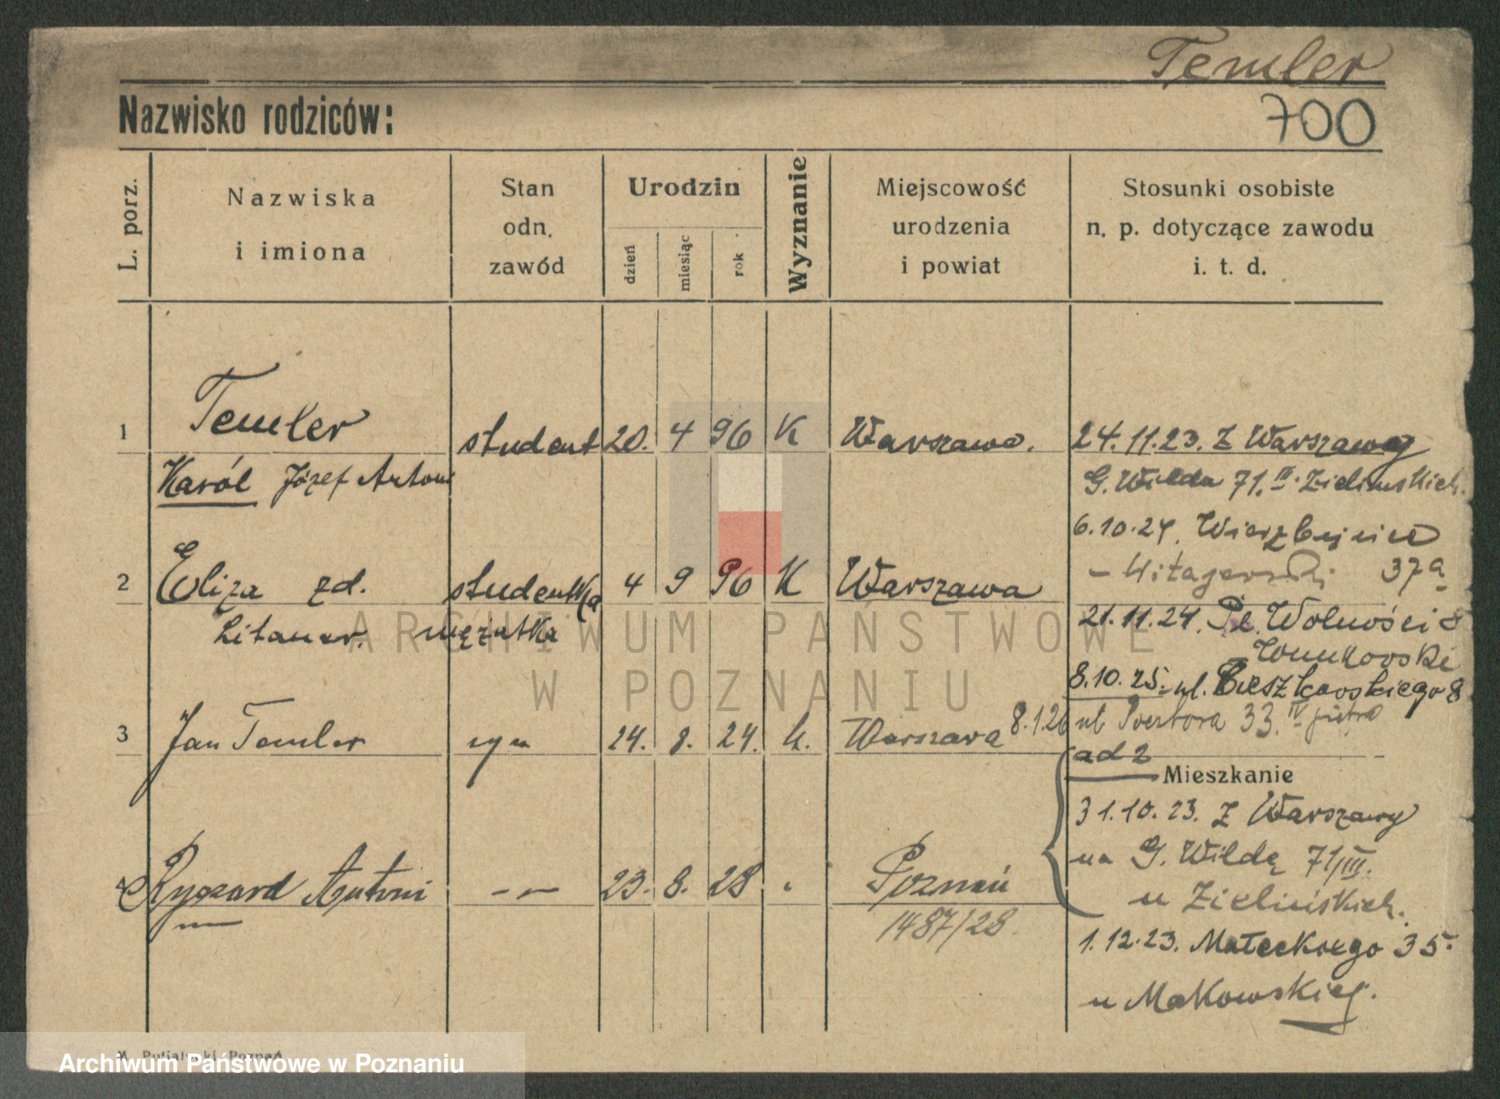 Temler
Nazwisko rodziców:
700
L. porz.
Nazwiska
i imiona
Stan
odn.
zawód
Urodzin
dzień
miesiąc
rok
Wyznanie
Miejscowość
urodzenia
i powiat
Stosunki osobiste
n. p. dotyczące zawodu
i. t. d.
1 Temler student 20. 4 96 K Warszawa. 24.11.23. Z Warszawy
Karól Józef Antoni G. Wilda 71. II. Zielinskich.
6.10.24. Wierzbięcice
37a
2 Eliza zd. studentka 4 9 96 K Warszawa
mężatka
21.11.24. Pl. Wolności 8
8.10.25. ul. Cieszkowskiego 8
3 Jan Temler syn 24. 8. 24. k. Warszawa 8.1.26 ul 33. IV piętro
ad 2
Mieszkanie
31.10.23. Z Warszawy
na G. Wildę 71/III.
u Zielińskich.
4 Ryszard Antoni 23. 8. 28 Poznań
1487/28.
1.12.23. Małeckiego 35.
u Makowskiej.
ARCHIWUM PAŃSTWOWE
W POZNANIU
Archiwum Państwowe w Poznaniu